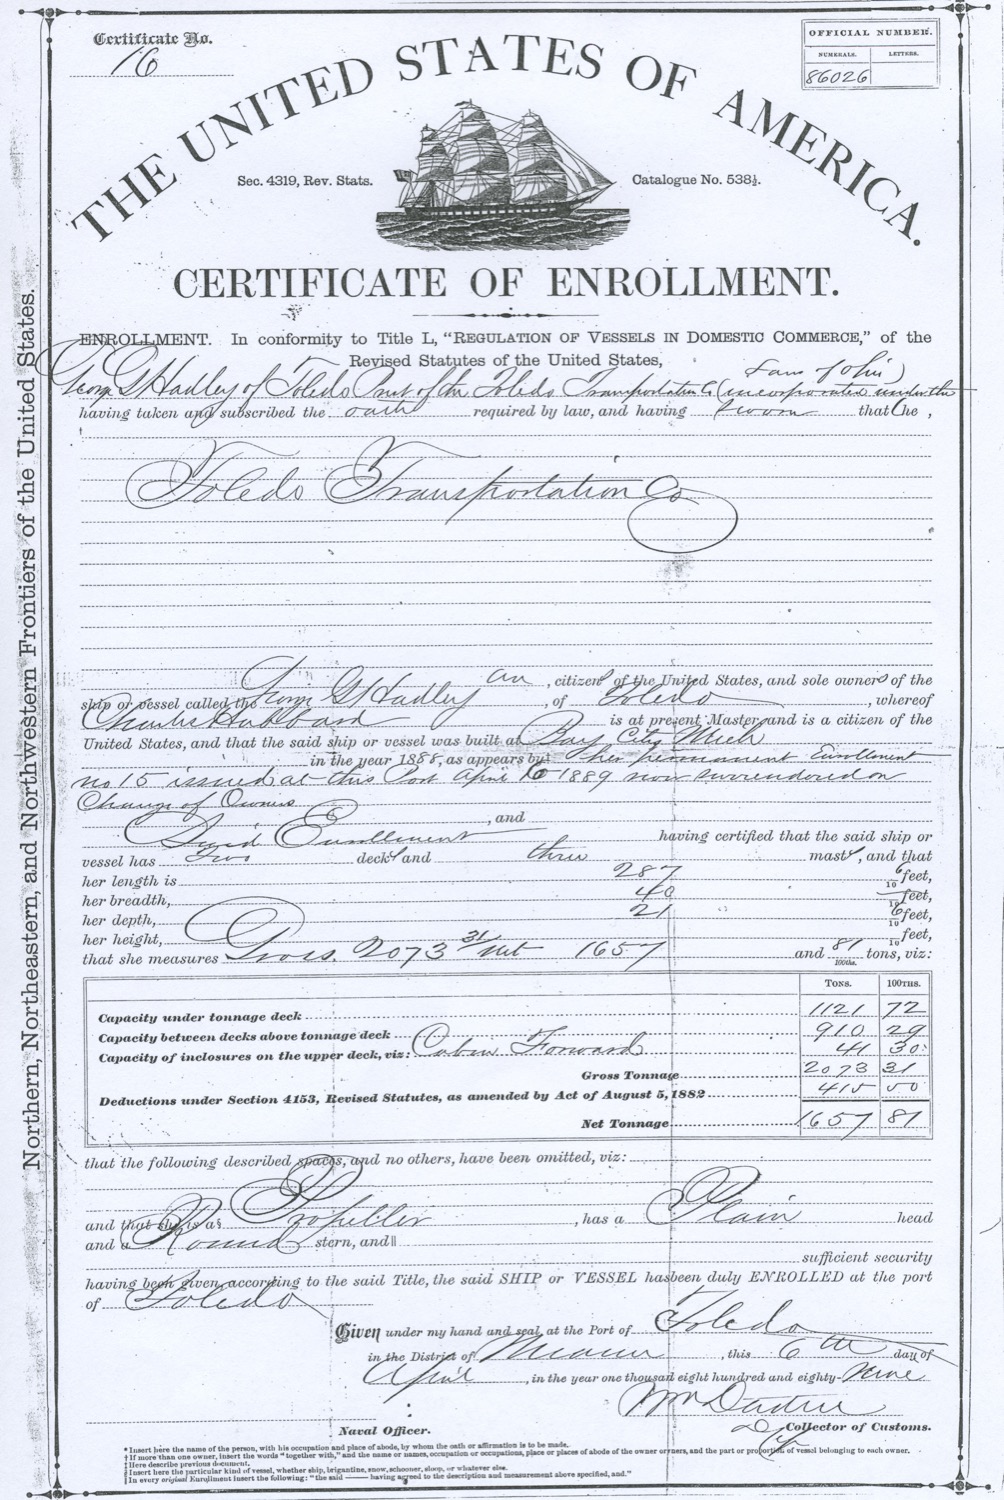 Certificate No.
16
OFFICIAL NUMBER.
NUMERALS. LETTERS.
86026
THE UNITED STATES OF AMERICA.
Sec. 4319, Rev. Stats.
Catalogue No. 538½.
CERTIFICATE OF ENROLLMENT.
ENROLLMENT. In conformity to Title L, "REGULATION OF VESSELS IN DOMESTIC COMMERCE," of the
Revised Statutes of the United States,
Laws of Ohio)
Geom G Hadley of Toledo Prest of the Toledo Transportation Co (incorporated under the
having taken and subscribed the oath required by law, and having sworn that he ,
Toledo Transportation Co
an , citizen of the United States, and sole owner of the
ship or vessel called the Geom G Hadley , of Toledo , whereof
Charles Hubbard is at present Master, and is a citizen of the
United States, and that the said ship or vessel was built at Bay City Mich
in the year 1888, as appears by‡ her permanent Enrollment
no 15 issued at this Port April 1889 now surrendered on
Change of Owners
, and
Said Enrollment having certified that the said ship or
vessel has Two decks and three masts, and that
her length is 287 6/10 feet,
her breadth, 40 /10 feet,
her depth, 21 6/10 feet,
her height, /10 feet,
that she measures Gross. 2073 31 Net 1657 and 81/100ths. tons, viz:
TONS. 100THS.
Capacity under tonnage deck 1121 72
Capacity between decks above tonnage deck 910 29
Capacity of inclosures on the upper deck, viz: Cabin Forward 41 30
Gross Tonnage 2073 31
Deductions under Section 4153, Revised Statutes, as amended by Act of August 5, 1882 415 50
Net Tonnage 1657 81
that the following described spaces, and no others, have been omitted, viz:
and that she is a§ Propeller , has a Plain head
and a Round stern, and‖
sufficient security
having been given according to the said Title, the said SHIP or VESSEL has been duly ENROLLED at the port
of Toledo
Given under my hand and seal, at the Port of Toledo
in the District of Miami , this 6th day of
April , in the year one thousand eight hundred and eighty-Nine
Wm
Collector of Customs.
Naval Officer.
* Insert here the name of the person, with his occupation and place of abode, by whom the oath or affirmation is to be made.
† If more than one owner, insert the words "together with," and the name or names, occupation or occupations, place or places of abode of the owner or owners, and the part or proportion of vessel belonging to each owner.
‡ Here describe previous document.
§ Insert here the particular kind of vessel, whether ship, brigantine, snow, schooner, sloop, or whatever else.
‖ In every original Enrollment insert the following: "the said —— having agreed to the description and measurement above specified, and."
Northern, Northeastern, and Northwestern Frontiers of the United States.